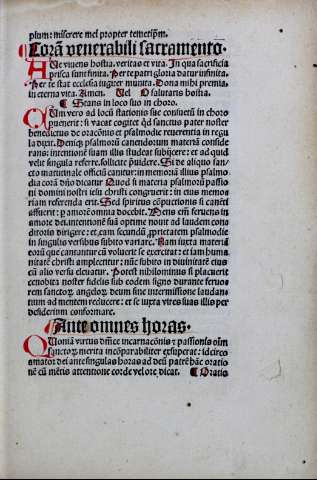 plum: miserere mei propter temetipm.
Corā venerabili sacramento.
AUe vivens hostia. veritas et vita. In qua sacrificia
prisca sunt finita. Per te patri gloria datur infinita.
Per te stat ecclesia iugiter munita. Dona mihi premia
in eterna vita. Amen. Vel O salutaris hostia.
¶ Stans in loco suo in choro.
QUm vero ad locū stationis sue consuetū in choro
puenerit: si vacat cogitet qd sanctus pater noster
benedictus de oracōnis et psalmodie reverentia in regu
la dixit. Deniqʒ psalmodiā canendorum materiā conside
rans: intentionē suam illis studeat subijcere: et ad quid
velit singula referre. sollicite pvidere. Si de aliquo san
cto matutinale officiū canitur: in memoriā illius psalmo
dia corā dn̄o dicatur Quod si materia psalmorū passio
ni domini nostri iesu christi congruerit: in eius memo
riam referenda erit. Sed spiritus cōpunctionis si cancti
affuerit: et amor omnia docebit. Mens em̄ serviens in
amore dei. intentionē suā optime novit ad laudem condi
toris dirigere: et eam secundū proprietatem psalmodie
in singulis versibus subito variare. Nam iuxta materiā
eorū que cantantur cū voluerit se exercitat: et iam huma
nitatē christi amplectitur: nūc subito in divinitatē eius
cū alio versu elevatur. Potest nihilominus si placuerit
cenobita noster fidelis sub eodem signo durante fervens
rem sanctorū angelorū deum sine intermissione laudan
tium ad mentem reducere: et se iuxta vires suas illis per
desiderium conformare.
Ante omnes horas.
QUoniā virtus dn̄ice incarnacōnis et passionis oīm
sanctorū merita incōparabiliter exsuperat: idcirco
amator dei ante singulas horas ad deū patrē hāc oratio
nē cū mētis attentione corde vel ore dicat. ¶ Oratio